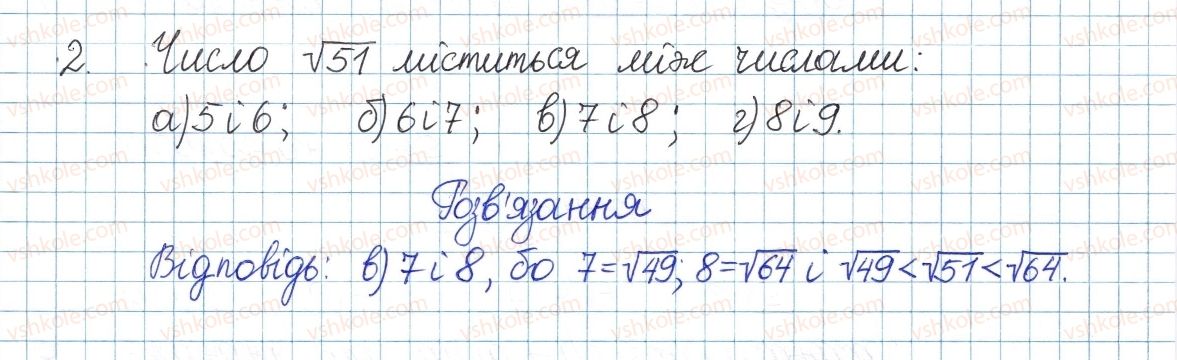 2. Число √51 міститься між числами:
а) 5 і 6; б) 6 і 7; в) 7 і 8; г) 8 і 9.
Розв'язання
Відповідь: в) 7 і 8, бо 7=√49; 8=√64 і √49<√51<√64.